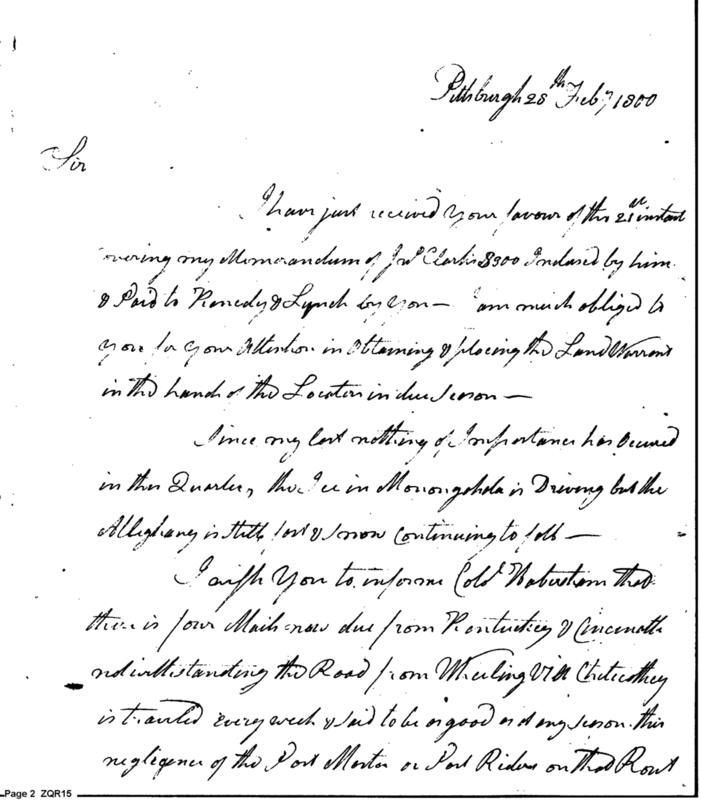 Pittsburgh 28th Feby 1800
Sir
I have just received your favour of the 21st instant
covering my Memorandum of Jno Clarks $300 Indorsed by him
& Paid to Kennedy & Lynch by you — I am much obliged to
you for your Attention in Obtaining & placing the Land Warrant
in the hands of the Locator in due season —
Since my last nothing of Importance has Occured
in this Quarter, the Ice in Monongahela is Driving but the
Alleghany is still fast & snow continuing to fall —
I wish You to informe Colo Habersham that
there is four Mails now due from Kentuckey &
notwithstanding the Road from Wheeling Via
is traveled every week & said to be as good as at any season. this
neglegence of the Post Master or Post Riders on that Rout
Page 2 ZQR15